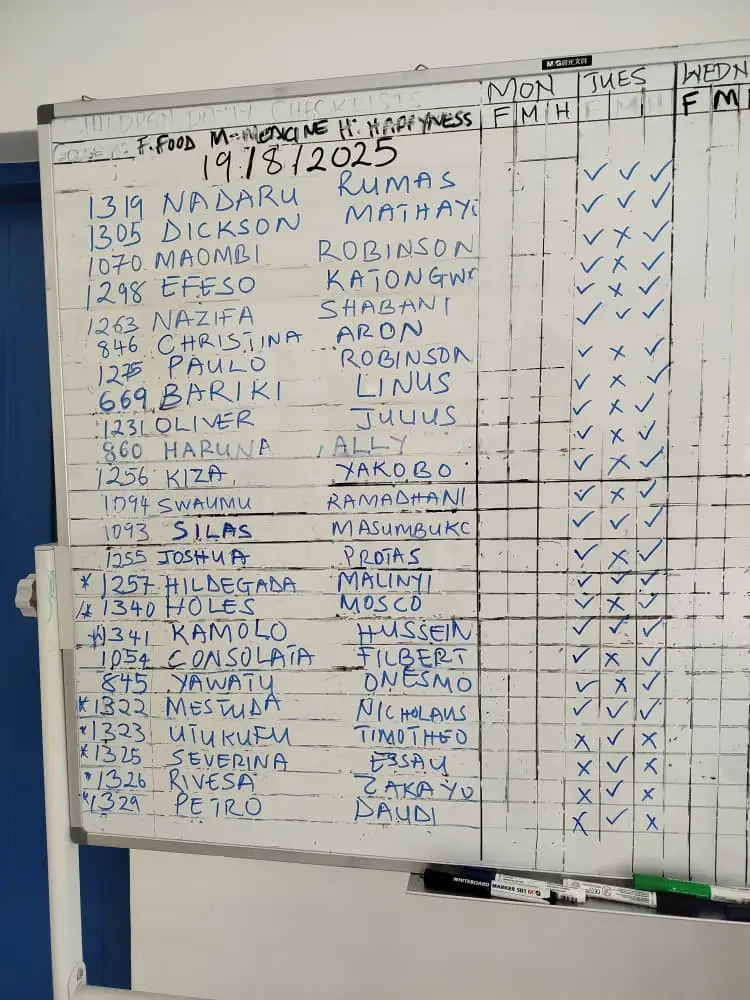 M&G
CHILDREN DAILY CHECKLISTS MON TUES WEDN
F. FOOD M=MEDICINE H. HAPPYNESS F M H F M H F M
19/8/2025
1319 NADARU RUMAS ✓ ✓ ✓
1305 DICKSON MATHAYI ✓ ✓ ✓
1070 MAOMBI ROBINSON ✓ x ✓
1298 EFESO KATONGWE ✓ x ✓
1263 NAZIFA SHABANI ✓ x ✓
846 CHRISTINA ARON ✓ ✓ ✓
1275 PAULO ROBINSON ✓ x ✓
669 BARIKI LINUS ✓ x ✓
1231 OLIVER JULIUS ✓ x ✓
860 HARUNA ALLY ✓ x ✓
1256 KIZA YAKOBO ✓ x ✓
1094 SWAUMU RAMADHANI ✓ x ✓
1093 SILAS MASUMBUKO ✓ ✓ ✓
1255 JOSHUA PROTAS ✓ x ✓
* 1257 HILDEGADA MALINYI ✓ ✓ ✓
* 1340 HOLES MOSCO ✓ x ✓
* 1341 KAMOLO HUSSEIN ✓ ✓ ✓
1054 CONSOLATA FILBERT ✓ x ✓
845 YAWATU ONESMO ✓ x ✓
* 1322 MESTUDA NICHOLAUS ✓ ✓ ✓
* 1323 UTUKUFU TIMOTHEO x ✓ x
* 1325 SEVERINA ESSAU x ✓ x
* 1326 RIVESA ZAKAYO x ✓ x
* 1329 PETRO DAUDI x ✓ x
WHITEBOARD MARKER 501 M&G